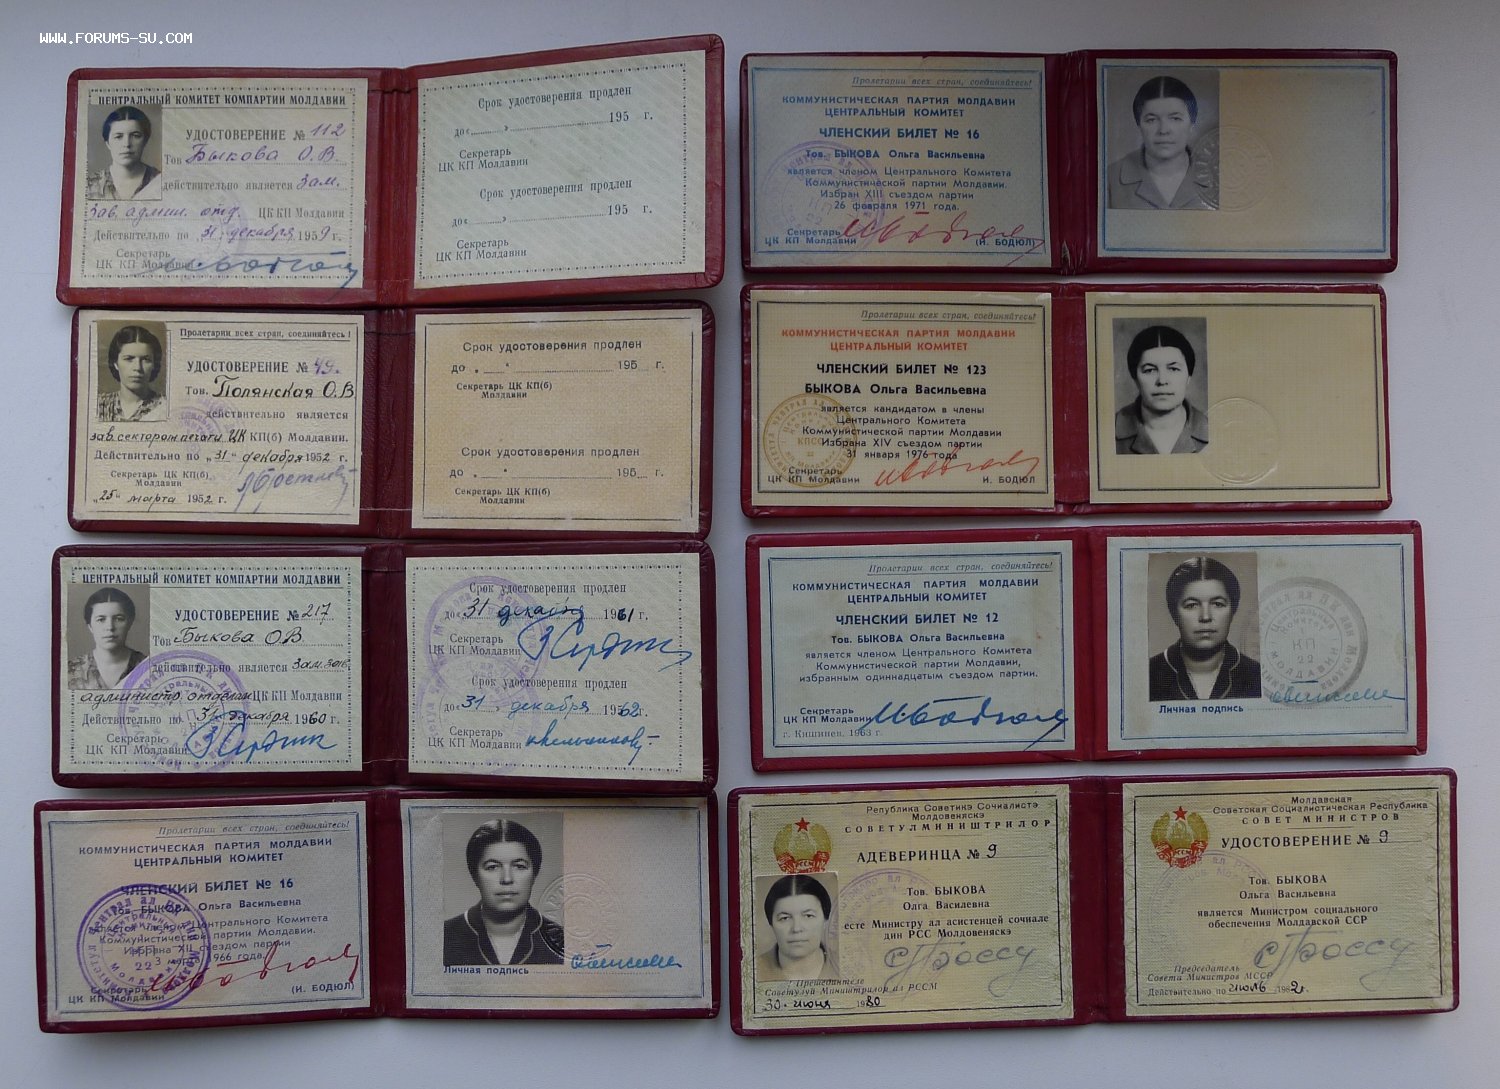 WWW.FORUMS-SU.COM
ЦЕНТРАЛЬНЫЙ КОМИТЕТ КОМПАРТИИ МОЛДАВИИ
УДОСТОВЕРЕНИЕ № 112
Тов Быкова О.В.
действительно является Зам.
Зав. админ. отд. ЦК КП Молдавии
Действительно по „31 декабря 1959 г.
Секретарь
ЦК КП Молдавии
Срок удостоверения продлен
до « » 195 г.
Секретарь
ЦК КП Молдавии
Срок удостоверения продлен
до « » 195 г.
Секретарь
ЦК КП Молдавии
Пролетарии всех стран, соединяйтесь!
УДОСТОВЕРЕНИЕ № 49.
Тов. Полянская О.В.
действительно является
зав. сектором печати ЦК КП(б) Молдавии.
Действительно по „31" декабря 1952 г.
Секретарь ЦК КП(б)
Молдавии
„25" марта 1952 г.
Срок удостоверения продлен
до „ " 195 г.
Секретарь ЦК КП(б)
Молдавии
Срок удостоверения продлен
до „ " 195 г.
Секретарь ЦК КП(б)
Молдавии
ЦЕНТРАЛЬНЫЙ КОМИТЕТ КОМПАРТИИ МОЛДАВИИ
УДОСТОВЕРЕНИЕ № 217
Тов Быкова О.В.
действительно является Зам. зав.
администр. отделам ЦК КП Молдавии
Действительно по 31 декабря 1960 г.
Секретарь
ЦК КП Молдавии
Срок удостоверения продлен
до « 31 декабря 1961 г.
Секретарь
ЦК КП Молдавии
Срок удостоверения продлен
до « 31 декабря 1962 г.
Секретарь
ЦК КП Молдавии
Пролетарии всех стран, соединяйтесь!
КОММУНИСТИЧЕСКАЯ ПАРТИЯ МОЛДАВИИ
ЦЕНТРАЛЬНЫЙ КОМИТЕТ
ЧЛЕНСКИЙ БИЛЕТ № 16
Тов. БЫКОВА Ольга Васильевна
является членом Центрального Комитета
Коммунистической партии Молдавии.
Избрана XII съездом партии
3 марта 1966 года.
Секретарь
ЦК КП Молдавии
(И. БОДЮЛ)
Личная подпись
Пролетарии всех стран, соединяйтесь!
КОММУНИСТИЧЕСКАЯ ПАРТИЯ МОЛДАВИИ
ЦЕНТРАЛЬНЫЙ КОМИТЕТ
ЧЛЕНСКИЙ БИЛЕТ № 16
Тов. БЫКОВА Ольга Васильевна
является членом Центрального Комитета
Коммунистической партии Молдавии.
Избран XIII съездом партии
26 февраля 1971 года.
Секретарь
ЦК КП Молдавии
(И. БОДЮЛ)
Пролетарии всех стран, соединяйтесь!
КОММУНИСТИЧЕСКАЯ ПАРТИЯ МОЛДАВИИ
ЦЕНТРАЛЬНЫЙ КОМИТЕТ
ЧЛЕНСКИЙ БИЛЕТ № 123
БЫКОВА Ольга Васильевна
является кандидатом в члены
Центрального Комитета
Коммунистической партии Молдавии
Избрана XIV съездом партии
31 января 1976 года
Секретарь
ЦК КП Молдавии
И. БОДЮЛ
Пролетарии всех стран, соединяйтесь!
КОММУНИСТИЧЕСКАЯ ПАРТИЯ МОЛДАВИИ
ЦЕНТРАЛЬНЫЙ КОМИТЕТ
ЧЛЕНСКИЙ БИЛЕТ № 12
Тов. БЫКОВА Ольга Васильевна
является членом Центрального Комитета
Коммунистической партии Молдавии,
избранным одиннадцатым съездом партии.
Секретарь
ЦК КП Молдавии
г. Кишинев, 1963 г.
КП
22
Личная подпись
Република Советикэ Сочиалистэ
Молдовеняскэ
СОВЕТУЛ МИНИШТРИЛОР
АДЕВЕРИНЦА № 9
Тов. БЫКОВА
Олга Василевна
есте Министру ал асистенцей сочиале
дин РСС Молдовеняскэ
Прешединтеле
Советулуй Миништрилор ал РССМ
30 июня 1980
Молдавская
Советская Социалистическая Республика
СОВЕТ МИНИСТРОВ
УДОСТОВЕРЕНИЕ № 9
Тов. БЫКОВА
Ольга Васильевна
является Министром социального
обеспечения Молдавской ССР
Председатель
Совета Министров МССР
Действительно по июль 1982 г.